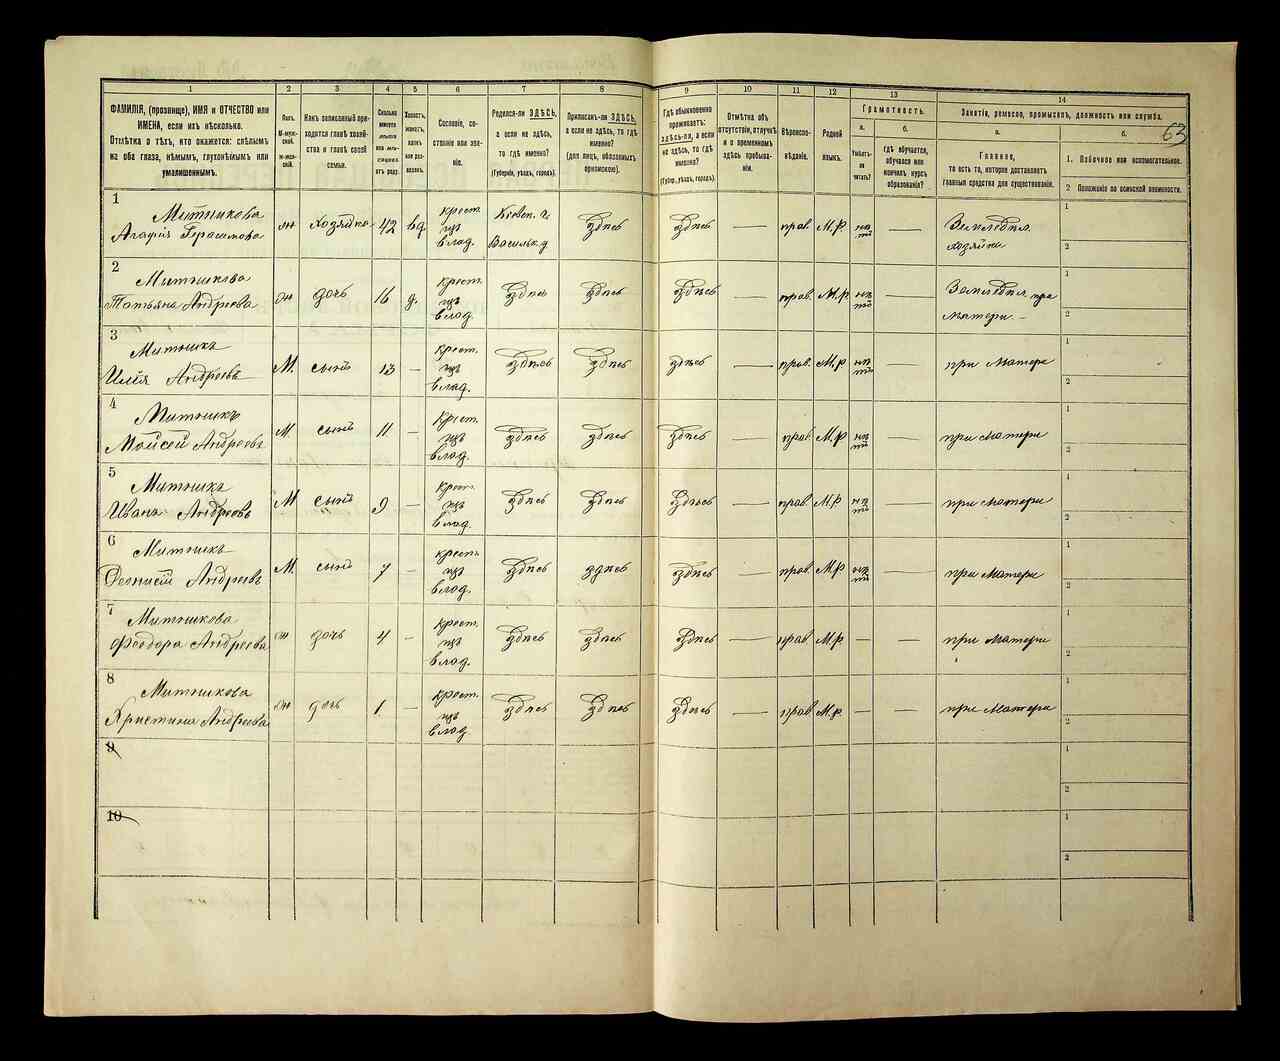 63
1 2 3 4 5 6 7 8 9 10 11 12 13 14
ФАМИЛІЯ, (прозвище), ИМЯ и ОТЧЕСТВО или
ИМЕНА, если ихъ нѣсколько.
Отмѣтка о тѣхъ, кто окажется: слѣпымъ
на оба глаза, нѣмымъ, глухонѣмымъ или
умалишеннымъ.
Полъ.
М-муж-
ской.
Ж-жен-
скій.
Какъ записанный при-
ходится главѣ хозяй-
ства и главѣ своей
семьи.
Сколько
минуло
лѣтъ
или мѣ-
сяцевъ
отъ роду.
Холостъ,
женатъ,
вдовъ
или раз-
веденъ.
Сословіе, со-
стояніе или зва-
ніе.
Родился-ли ЗДѢСЬ,
а если не здѣсь,
то гдѣ именно?
(Губернія, уѣздъ, городъ).
Приписанъ-ли ЗДѢСЬ,
а если не здѣсь, то гдѣ
именно?
(для лицъ, обязанныхъ
припискою).
Гдѣ обыкновенно
проживаетъ:
здѣсь-ли, а если
не здѣсь, то гдѣ
именно?
(Губер., уѣздъ, городъ).
Отмѣтка объ
отсутствіи, отлучкѣ
и о временномъ
здѣсь пребыва-
ніи.
Вѣроиспо-
вѣданіе.
Родной
языкъ.
Грамотность.
а.
Умѣетъ-
ли
читать?
б.
Гдѣ обучается,
обучался или
кончилъ курсъ
образованія?
Занятіе, ремесло, промыселъ, должность или служба.
а.
Главное,
то есть то, которое доставляетъ
главныя средства для существованія.
б.
1. Побочное или вспомогательное.
2 Положеніе по воинской повинности.
1
Митюшкова
Агафія Герасимова
жн Хозяйка 42 вд
крест.
изъ
влад.
Кіевск. г.
Васильк. у
здѣсь здѣсь — прав. М.Р. не
тъ —
Земледѣл.
хозяйка
1
2
2
Митюшкова
Татьяна Андреева
жн дочь 16 д.
крест.
изъ
влад.
здѣсь здѣсь здѣсь — прав. М.Р нѣ
тъ —
Земледѣл. при
матери. —
1
2
3
Митюшкъ
Илія Андреевъ
М. сынъ 13 —
крест.
изъ
влад.
здѣсь здѣсь здѣсь — прав. М.Р. нѣ
тъ —
при матери
1
2
4
Митюшкъ
Моисей Андреевъ
М. сынъ 11 —
крест.
изъ
влад.
здѣсь здѣсь здѣсь — прав. М.Р нѣ
тъ —
при матери
1
2
5
Митюшкъ
Иванъ Андреевъ
М сынъ 9 —
крест.
изъ
влад.
здѣсь здѣсь здѣсь — прав. М.Р нѣ
тъ —
при матери
1
2
6
Митюшкъ
Андреевъ
М. сынъ 7 —
крест.
изъ
влад.
здѣсь здѣсь здѣсь — прав. М.Р. нѣ
тъ —
при матери
1
2
7
Митюшкова
Феодора Андреева
жн дочь 4 —
крест.
изъ
влад.
здѣсь здѣсь здѣсь — прав М.Р. — —
при матери
1
2
8
Митюшкова
Христина Андреева
жн дочь 1. —
крест.
изъ
влад
здѣсь здѣсь здѣсь — прав. М.Р. — —
при матери
1
2
9
1
2
10
1
2